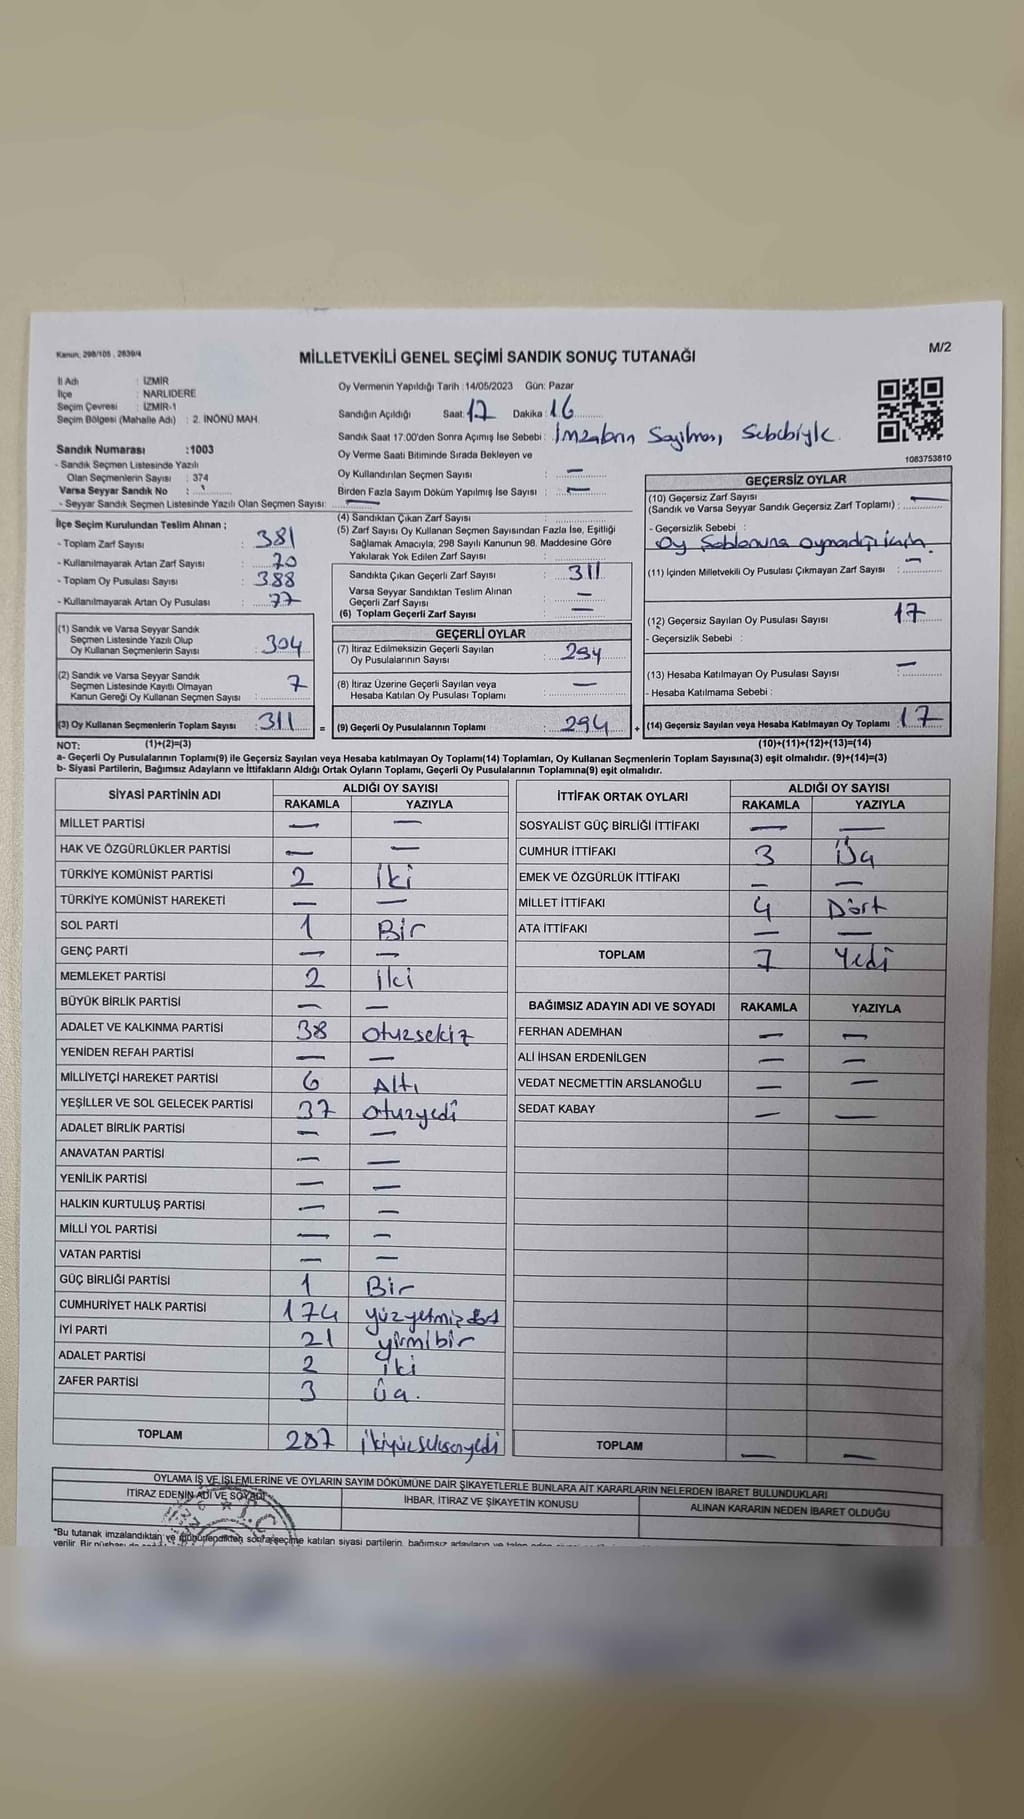 Kanun; 298/105 , 2839/4
MİLLETVEKİLİ GENEL SEÇİMİ SANDIK SONUÇ TUTANAĞI
M/2
İl Adı : İZMİR
İlçe : NARLIDERE
Seçim Çevresi : İZMİR-1
Seçim Bölgesi (Mahalle Adı) : 2. İNÖNÜ MAH.
Sandık Numarası :1003
- Sandık Seçmen Listesinde Yazılı
Olan Seçmenlerin Sayısı : 374
Varsa Seyyar Sandık No :
- Seyyar Sandık Seçmen Listesinde Yazılı Olan Seçmen Sayısı: —
Oy Vermenin Yapıldığı Tarih :14/05/2023 Gün: Pazar
Sandığın Açıldığı Saat: 17 Dakika: 16
Sandık Saat 17:00'den Sonra Açımış İse Sebebi : İmzaların Sayılması Sebebiyle
Oy Verme Saati Bitiminde Sırada Bekleyen ve
Oy Kullandırılan Seçmen Sayısı : —
Birden Fazla Sayım Döküm Yapılmış İse Sayısı : —
1083753810
İlçe Seçim Kurulundan Teslim Alınan ;
- Toplam Zarf Sayısı : 381
- Kullanılmayarak Artan Zarf Sayısı : 70
- Toplam Oy Pusulası Sayısı : 388
- Kullanılmayarak Artan Oy Pusulası : 77
(1) Sandık ve Varsa Seyyar Sandık
Seçmen Listesinde Yazılı Olup
Oy Kullanan Seçmenlerin Sayısı : 304
(2) Sandık ve Varsa Seyyar Sandık
Seçmen Listesinde Kayıtlı Olmayan
Kanun Gereği Oy Kullanan Seçmen Sayısı : 7
(3) Oy Kullanan Seçmenlerin Toplam Sayısı : 311 =
(1)+(2)=(3)
(4) Sandıktan Çıkan Zarf Sayısı :
(5) Zarf Sayısı Oy Kullanan Seçmen Sayısından Fazla İse, Eşitliği
Sağlamak Amacıyla; 298 Sayılı Kanunun 98. Maddesine Göre
Yakılarak Yok Edilen Zarf Sayısı :
Sandıkta Çıkan Geçerli Zarf Sayısı : 311
Varsa Seyyar Sandıktan Teslim Alınan
Geçerli Zarf Sayısı : —
(6) Toplam Geçerli Zarf Sayısı : —
GEÇERLİ OYLAR
(7) İtiraz Edilmeksizin Geçerli Sayılan
Oy Pusulalarının Sayısı : 294
(8) İtiraz Üzerine Geçerli Sayılan veya
Hesaba Katılan Oy Pusulası Toplamı : —
(9) Geçerli Oy Pusulalarının Toplamı : 294 +
GEÇERSİZ OYLAR
(10) Geçersiz Zarf Sayısı
(Sandık ve Varsa Seyyar Sandık Geçersiz Zarf Toplamı) : —
- Geçersizlik Sebebi :
Oy Şablonuna
(11) İçinden Milletvekili Oy Pusulası Çıkmayan Zarf Sayısı : —
(12) Geçersiz Sayılan Oy Pusulası Sayısı : 17
- Geçersizlik Sebebi :
(13) Hesaba Katılmayan Oy Pusulası Sayısı : —
- Hesaba Katılmama Sebebi :
(14) Geçersiz Sayılan veya Hesaba Katılmayan Oy Toplamı : 17
(10)+(11)+(12)+(13)=(14)
NOT:
a- Geçerli Oy Pusulalarının Toplamı(9) ile Geçersiz Sayılan veya Hesaba katılmayan Oy Toplamı(14) Toplamları, Oy Kullanan Seçmenlerin Toplam Sayısına(3) eşit olmalıdır. (9)+(14)=(3)
b- Siyasi Partilerin, Bağımsız Adayların ve İttifakların Aldığı Ortak Oyların Toplamı, Geçerli Oy Pusulalarının Toplamına(9) eşit olmalıdır.
SİYASİ PARTİNİN ADI ALDIĞI OY SAYISI
RAKAMLA YAZIYLA
MİLLET PARTİSİ — —
HAK VE ÖZGÜRLÜKLER PARTİSİ — —
TÜRKİYE KOMÜNİST PARTİSİ 2 İki
TÜRKİYE KOMÜNİST HAREKETİ — —
SOL PARTİ 1 Bir
GENÇ PARTİ — —
MEMLEKET PARTİSİ 2 İki
BÜYÜK BİRLİK PARTİSİ — —
ADALET VE KALKINMA PARTİSİ 38 otuzsekiz
YENİDEN REFAH PARTİSİ — —
MİLLİYETÇİ HAREKET PARTİSİ 6 Altı
YEŞİLLER VE SOL GELECEK PARTİSİ 37 otuzyedi
ADALET BİRLİK PARTİSİ — —
ANAVATAN PARTİSİ — —
YENİLİK PARTİSİ — —
HALKIN KURTULUŞ PARTİSİ — —
MİLLİ YOL PARTİSİ — —
VATAN PARTİSİ — —
GÜÇ BİRLİĞİ PARTİSİ 1 Bir
CUMHURİYET HALK PARTİSİ 174 yüzyetmişdört
İYİ PARTİ 21 yirmibir
ADALET PARTİSİ 2 iki
ZAFER PARTİSİ 3 üç.
TOPLAM 287 ikiyüzseksenyedi
İTTİFAK ORTAK OYLARI ALDIĞI OY SAYISI
RAKAMLA YAZIYLA
SOSYALİST GÜÇ BİRLİĞİ İTTİFAKI — —
CUMHUR İTTİFAKI 3 Üç
EMEK VE ÖZGÜRLÜK İTTİFAKI — —
MİLLET İTTİFAKI 4 Dört
ATA İTTİFAKI — —
TOPLAM 7 Yedi
BAĞIMSIZ ADAYIN ADI VE SOYADI RAKAMLA YAZIYLA
FERHAN ADEMHAN — —
ALİ İHSAN ERDENİLGEN — —
VEDAT NECMETTİN ARSLANOĞLU — —
SEDAT KABAY — —
TOPLAM — —
OYLAMA İŞ VE İŞLEMLERİNE VE OYLARIN SAYIM DÖKÜMÜNE DAİR ŞİKAYETLERLE BUNLARA AİT KARARLARIN NELERDEN İBARET BULUNDUKLARI
İTİRAZ EDENİN ADI VE SOYADI İHBAR, İTİRAZ VE ŞİKAYETİN KONUSU ALINAN KARARIN NEDEN İBARET OLDUĞU
T.C.
"Bu tutanak imzalandıktan ve mühürlendikten sonra seçime katılan siyasi partilerin, bağımsız adayların ve